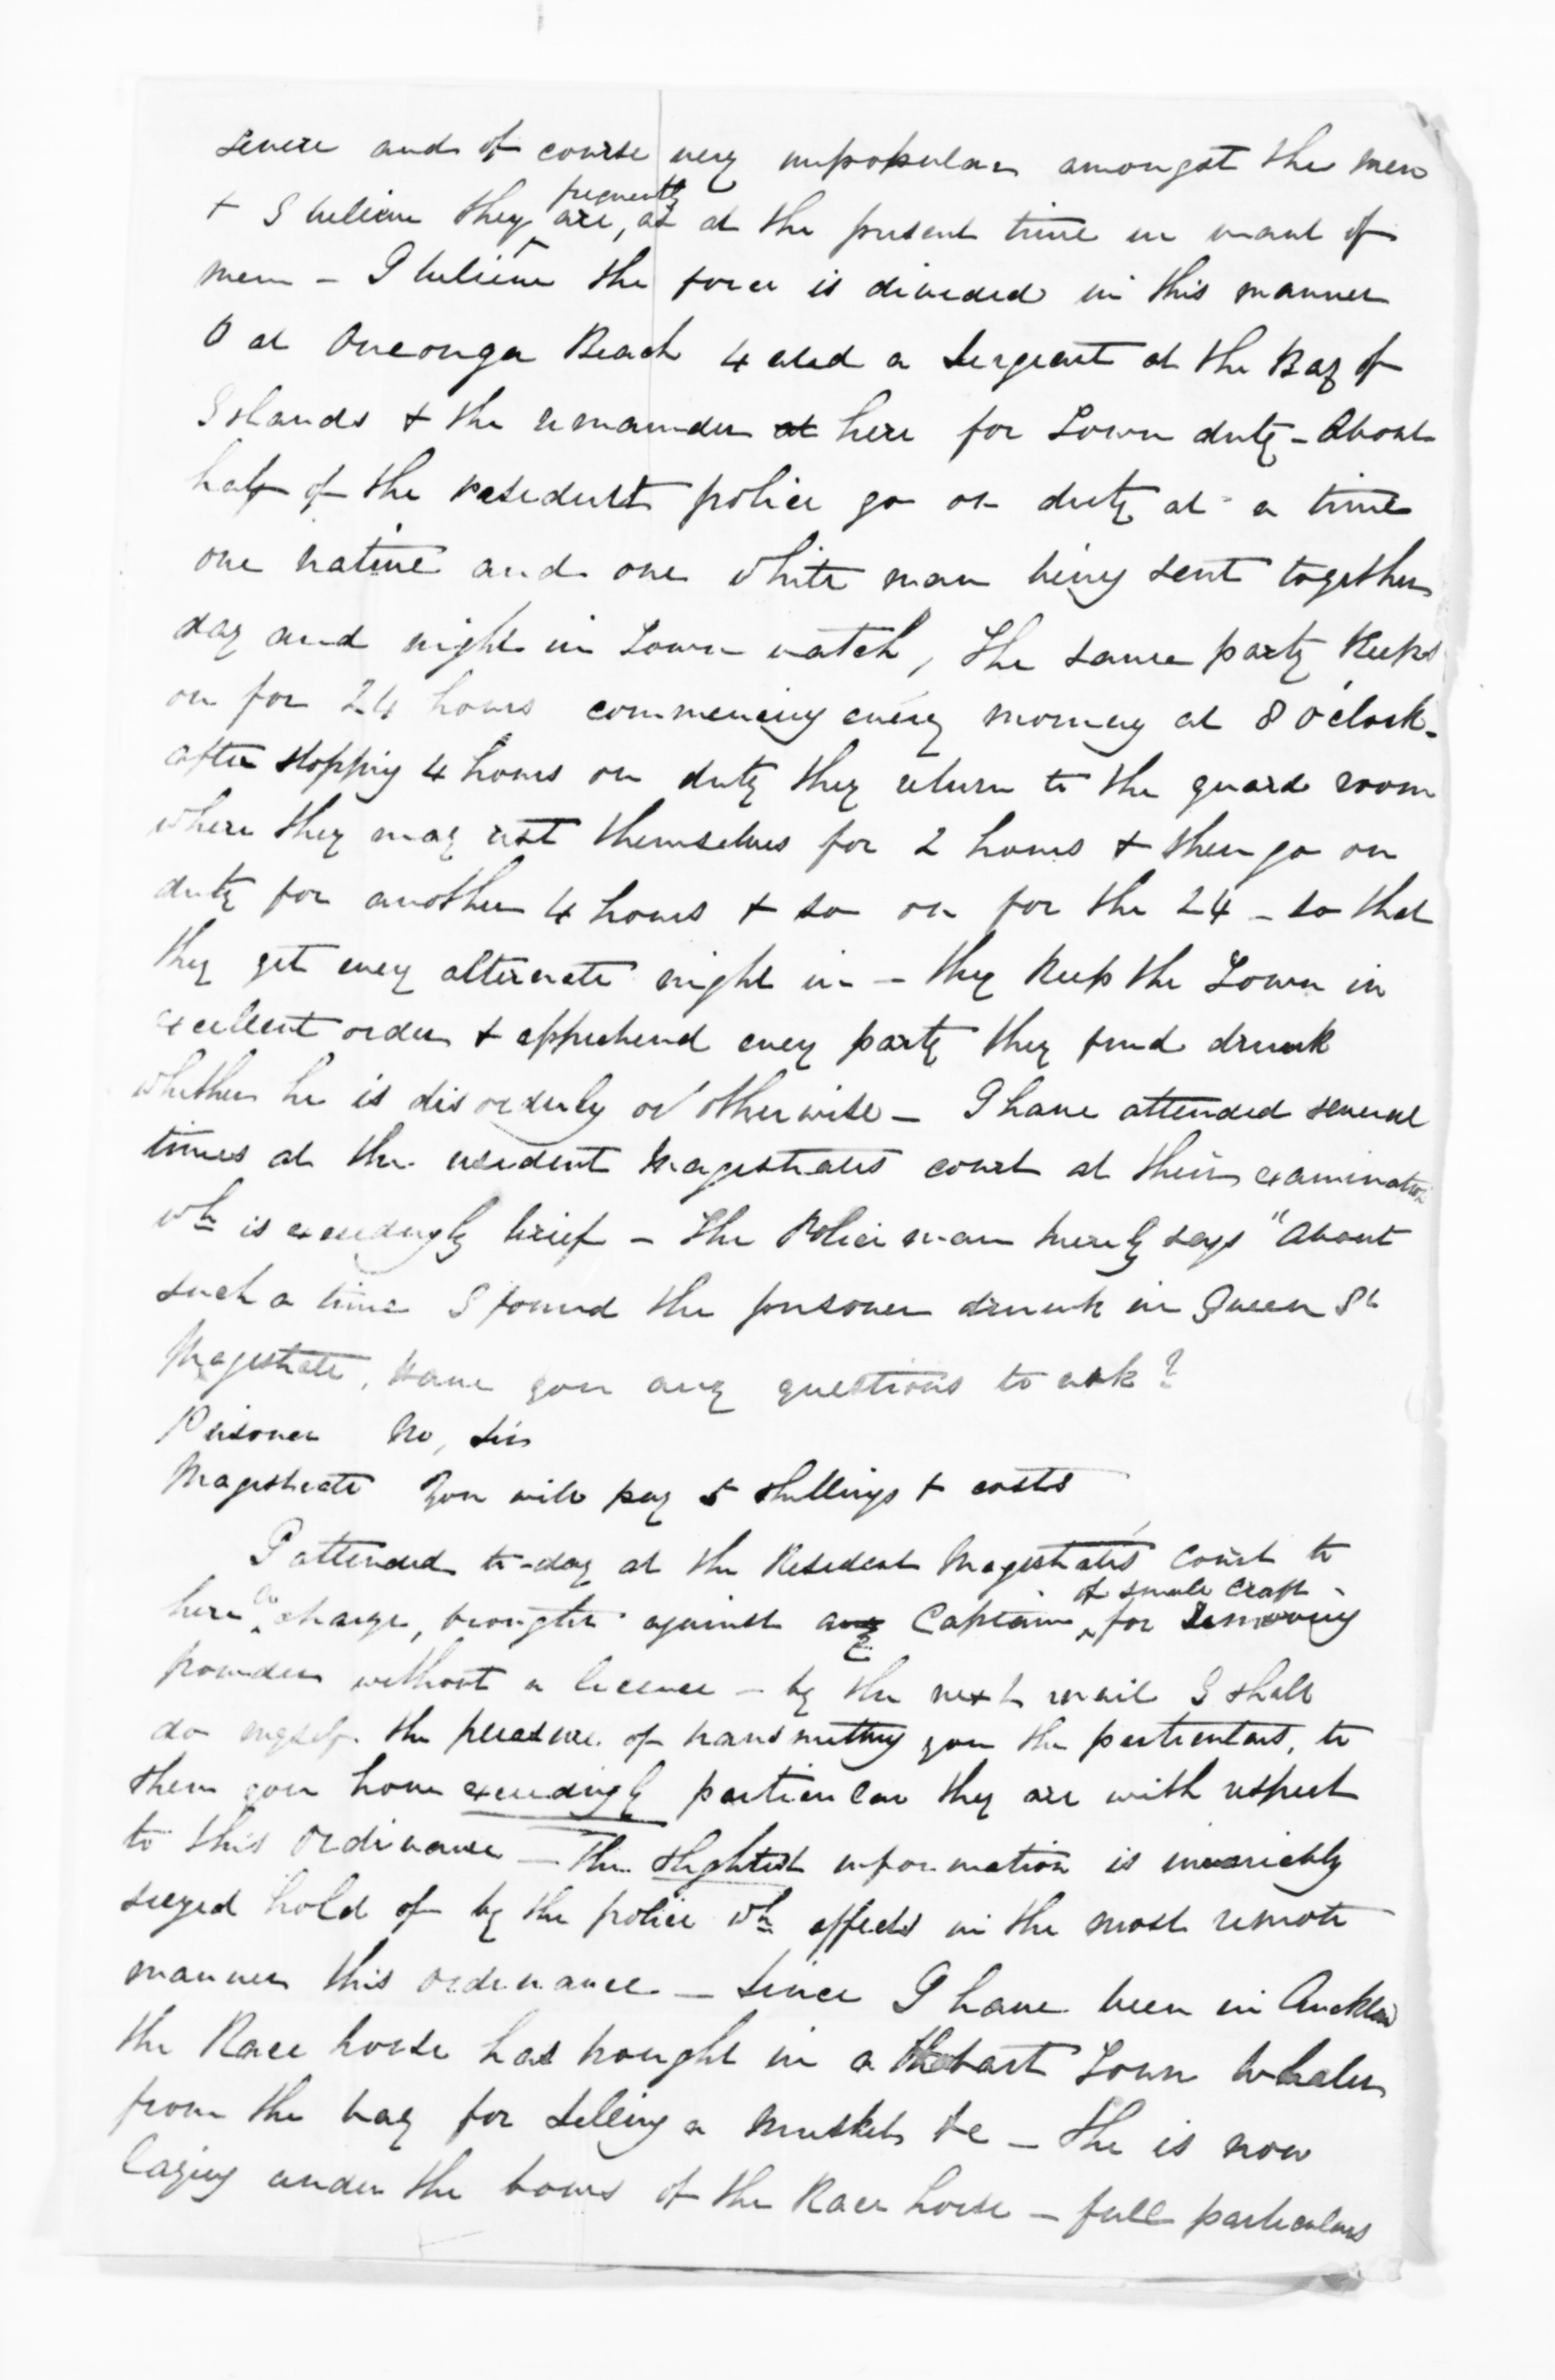 severe and of course very unpopular amongst the men
+ I believe they frequently are, as at the present time in want of
men - I believe the force is divided in this manner
at Oneonga Beach 4 and a Sergeant at the Bay of
Islands + the remainder at here for Town duty - About
half of the resident police go on duty at a time
one native and one white man being sent together
day and night in Town watch, The same party keeps
on for 24 hours commencing every morning at 8 o'clock -
after stopping 4 hours on duty they return to the guard room
where they may rest themselves for 2 hours + then go on
duty for another 4 hours + so on for the 24 - so that
they get every alternate night in - they keep the Town in
excellent order + apprehend every party they find drunk
whether he is disorderly or otherwise - I have attended several
times at the resident Magistrates court at their examination
wh is exceedingly brief - The Police man merely says "About
such a time I found the prisoner drunk in Queen St
Magistrate, Have you any questions to ask?
Prisoner No, Sir
Magistrate You will pay 5 shillings + costs
I attended to-day at the Resident Magistrates Court to
here a charge, brought against any Captain of small craft for removing
powder without a licence - by the next mail I shall
do myself the pleasure of transmitting you the particulars, to
shew you how exceedingly particular they are with respect
to this Ordinance - The slightest information is invariably
seezed hold of by the police wh affects in the most remote
manner this ordinance - Since I have been in Auckland
the Race horse has brought in a Hobart Town Whaler
from the bay for selling a musket &c - She is now
laying under the bows of the Race horse - full particulars